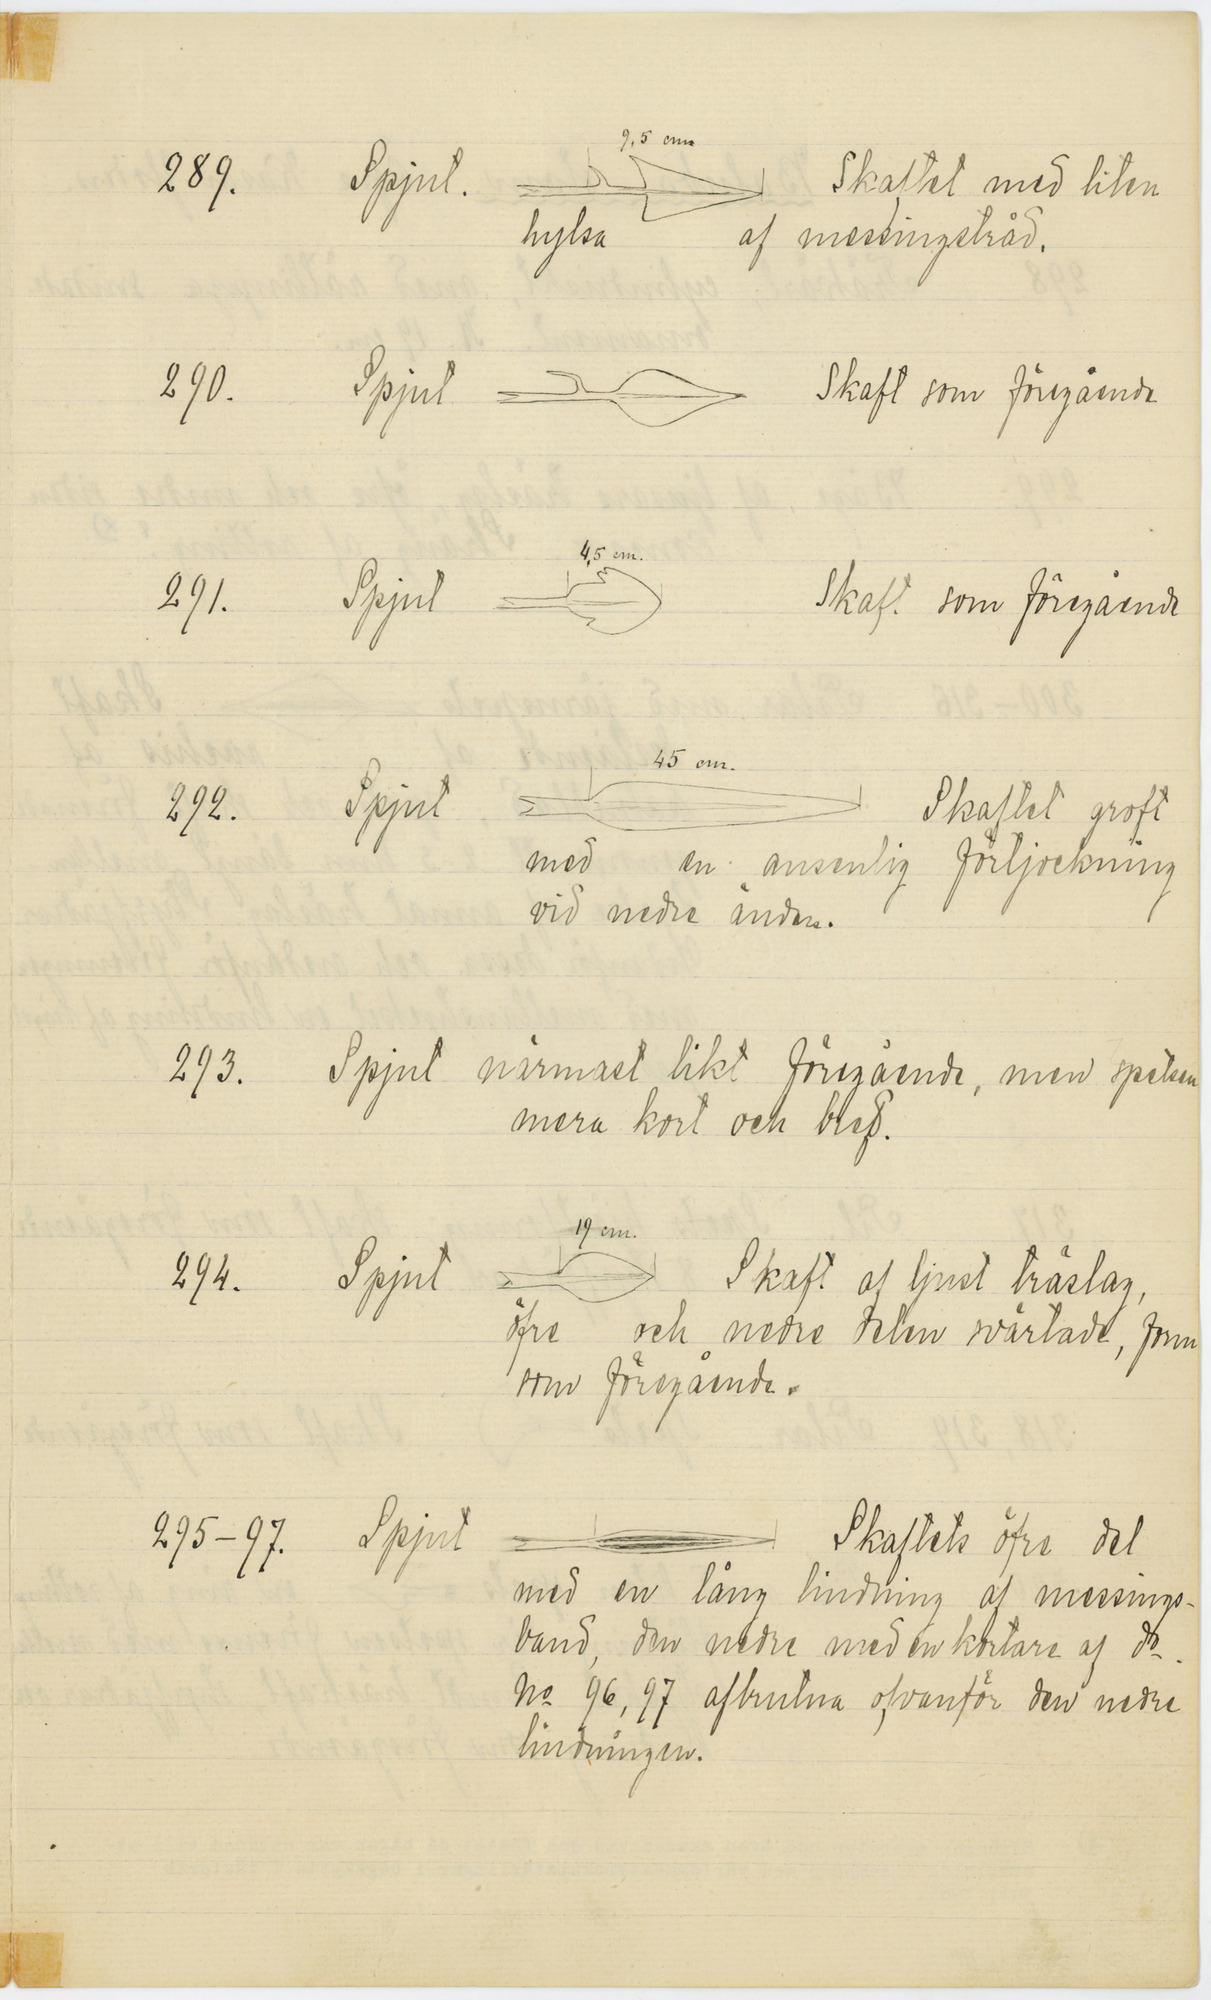 9,5 cm
289. Spjut. Skaftet med liten
hylsa af messingstråd.
290. Spjut Skaft som föregående
4,5 cm.
291. Spjut Skaft som föregående
45 cm.
292. Spjut Skaftet groft
med en ansenlig förtjockning
vid nedre ändan.
293. Spjut närmast likt föregående, men spetsen
mera kort och bred.
19 cm.
294. Spjut Skaft af ljust träslag,
öfre och nedre delen svärtade, form
som föregående.
295-97. Spjut Skaftets öfre del
med en lång lindning af messings-
band, den nedre med en kortare af do.
No 96, 97 afbrutna ofvanför den nedre
lindningen.